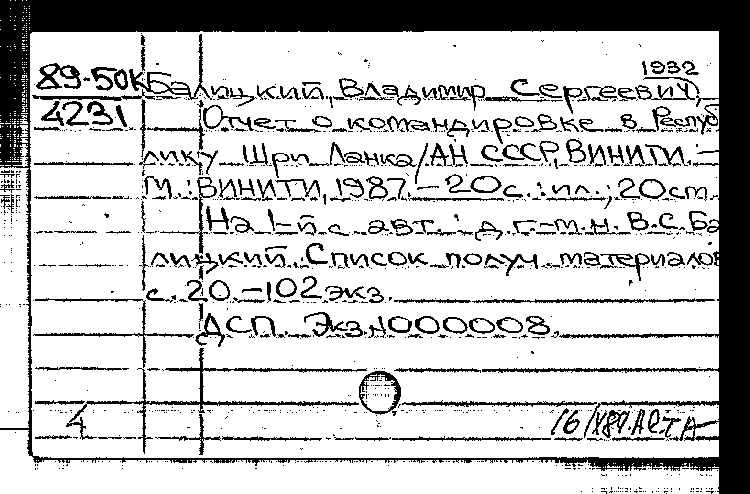 1932
89-50К Балицкий, Владимир Сергеевич,
4231 Отчет о командировке в Респуб
лику Шри Ланка/АН СССР, ВИНИТИ. –
М.: ВИНИТИ, 1987. – 20 с. : ил.; 20 см.
На 1-й с. авт.: д. г.-м. н. В. С. Ба
лицкий. Список получ. материалов
с. 20. – 102 экз.
ДСП. Экз. N000008.
4